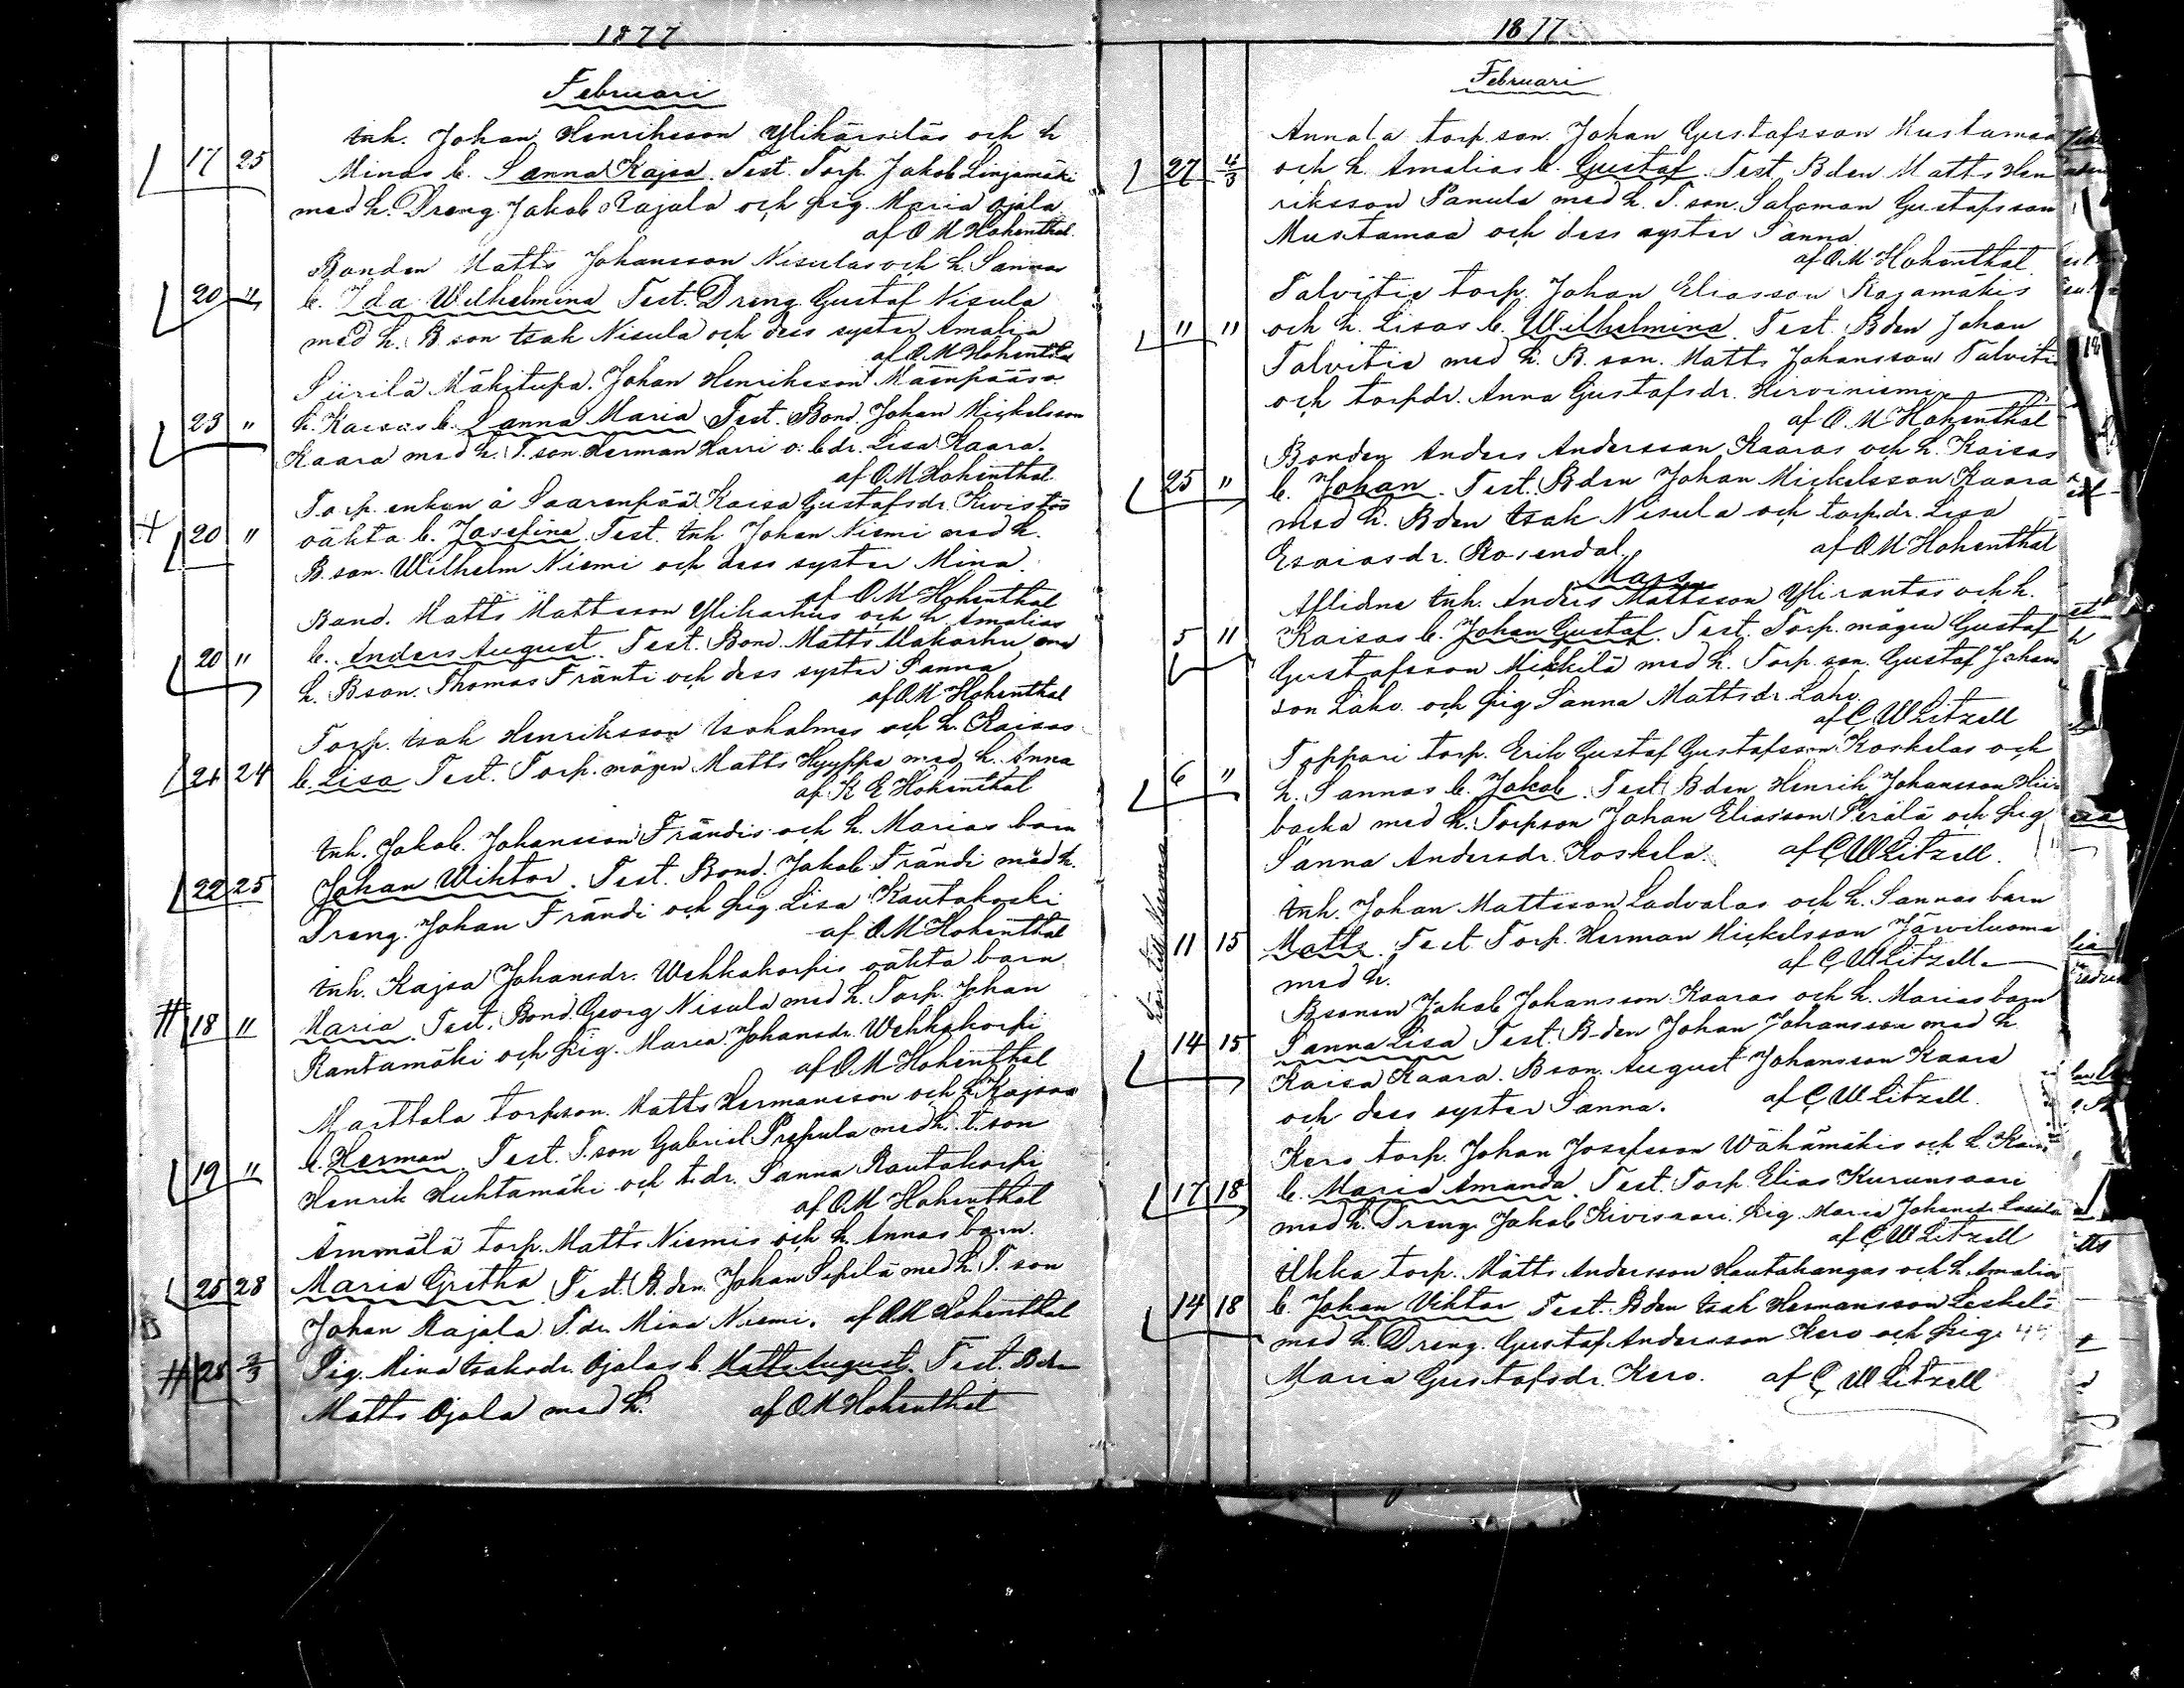 1877
Februari
Inh. Johan Henriksson Ylihärsiläs och h
17 25 Minas b. Sanna Kajsa. Test. Torp. Jakob Linjamäki
med h. Dreng. Jakob Rajala och pig. Maria Ojala
af O M Hohenthal.
Bonden Matts Johansson Nisulas och h. Sannas
20 " b. Ida Wilhelmina Test. Dreng Gustaf Nisula
med h. B. son Isak Nisula och dess syster Amalia
af O M Hohenthal
Siirilä Mäkitupa. Johan Henriksson Mäenpääs o.
23 " h. Kaisas b. Sanna Maria Test. Bond. Johan Mickelsson
Kaara med h. T. son Herman Harri o. bdr. Lisa Kaara.
af O M Hohenthal
Torp. enkan å Saarenpää Kaisa Gustafsdr. Kivistös
+ 20 " oäkta b. Josefina. Test. Inh. Johan Niemi med h.
B. son. Wilhelm Niemi och dess syster Mina.
af O M Hohenthal
Bond. Matts Mattsson Ylikarhus och h. Amalias
20 " b. Anders August. Test. Bond. Matts Alakarhu med
h. Bson. Thomas Fränti och dess syster Sanna
af O M Hohenthal
Torp. Isak Henriksson Isoholmes och h. Kaisas
21 24 b. Lisa Test. Torp. mågen Matts Hyyppä med h. Anna
af K E Hohenthal
Inh. Jakob. Johansson Frändis och h. Marias barn
22 25 Johan Wiktor. Test. Bond. Jakob Frändi med h.
Dreng. Johan Frändi och pig. Lisa Kautakoski
af O M Hohenthal
Inh. Kajsa Johansdr. Wehkakorpis oäkta barn
# 18 " Maria. Test. Bond. Georg Nisula med h. Torp. Johan
Rantamäki och pig. Maria Johansdr. Wehkakorpi
af O M Hohenthal
Marttala torpson. Matts Hermansson och h. Kajsas
19 " b. Herman. Test. T. son Gabriel Prepula med h. t. son
Henrik Huhtamäki och t. dr. Sanna Rautakorpi
af O M Hohenthal
Ämmälä torp. Matts Niemis och h. Annas barn.
25 28 Maria Gretha. Test. B. den. Johan Sepelä med h. T. son
Johan Rajala T. dr. Mina Niemi. af O M Hohenthal
# 28 2/3 Pig. Mina Isaksdr. Ojalas b. Matts August. Test. Bden
Matts Ojala med h. af O M Hohenthal
1877
Februari
Annala torp. son. Johan Gustafsson Mustamaa
27 4/3 och h. Amalias b. Gustaf. Test. Bden Matts Hen
riksson Panula med h. T. son. Salomon Gustafsson
Mustamaa och dess syster Sanna
af O M Hohenthal
Talvitie torp. Johan Eliasson Kajamäkis
" " och h. Lisas b. Wilhelmina. Test. Bden Johan
Talvitie med h. B. son. Matts Johansson Talvitie
och torpdr. Anna Gustafsdr. Hirviniemi
af O M Hohenthal
Bonden Anders Andersson Kaaras och h. Kaisas
25 " b. Johan. Test. Bden Johan Mickelsson Kaara
med h. Bden Isak Nisula och torp. dr. Lisa
Esaiasdr. Rosendal. af O M Hohenthal
Mars
Aflidne Inh. Anders Mattsson Ylirantas och h.
5 " Kaisas b. Johan Gustaf. Test. Torp. mågen Gustaf
Gustafsson Mikkilä med h. Torp. son. Gustaf Johans
son Laho. och pig Sanna Mattsdr. Laho.
af C W Litzell
Toppari torp. Erik Gustaf Gustafsson Koskelas och
6 " h. Sannas b. Jakob. Test. Bden Henrik Johansson
backa med h. Torpson Johan Eliasson Perälä och pig
Sanna Andersdr. Koskela. af C W Litzell.
Inh. Johan Mattsson Ladvalas och h. Sannas barn
11 15 Matts. Test. Torp. Herman Mickelsson Järviluoma
med h. af C W Litzell
Bsonen Jakob Johansson Kaaras och h. Marias barn
14 15 Sanna Lisa Test. B-den Johan Johansson med h
Kaisa Kaara. Bson. August Johansson Kaara
och dess syster Sanna. af C W Litzell.
Kero torp. Johan Josefsson Wähämäkis och h.
17 18 b. Maria Amanda. Test. Torp. Elias Kurunsaari
med h. Dreng. Jakob Kivisaari. Pig. Maria Johansdr.
af C W Litzell
Ilkka torp. Matts Andersson Hautakangas och h. Amalias
14 18 b. Johan Viktor Test. Bden Isak Hermansson Leskelä
med h. Dreng. Gustaf Andersson Kero och pig.
Maria Gustafsdr. Kero. af C W Litzell